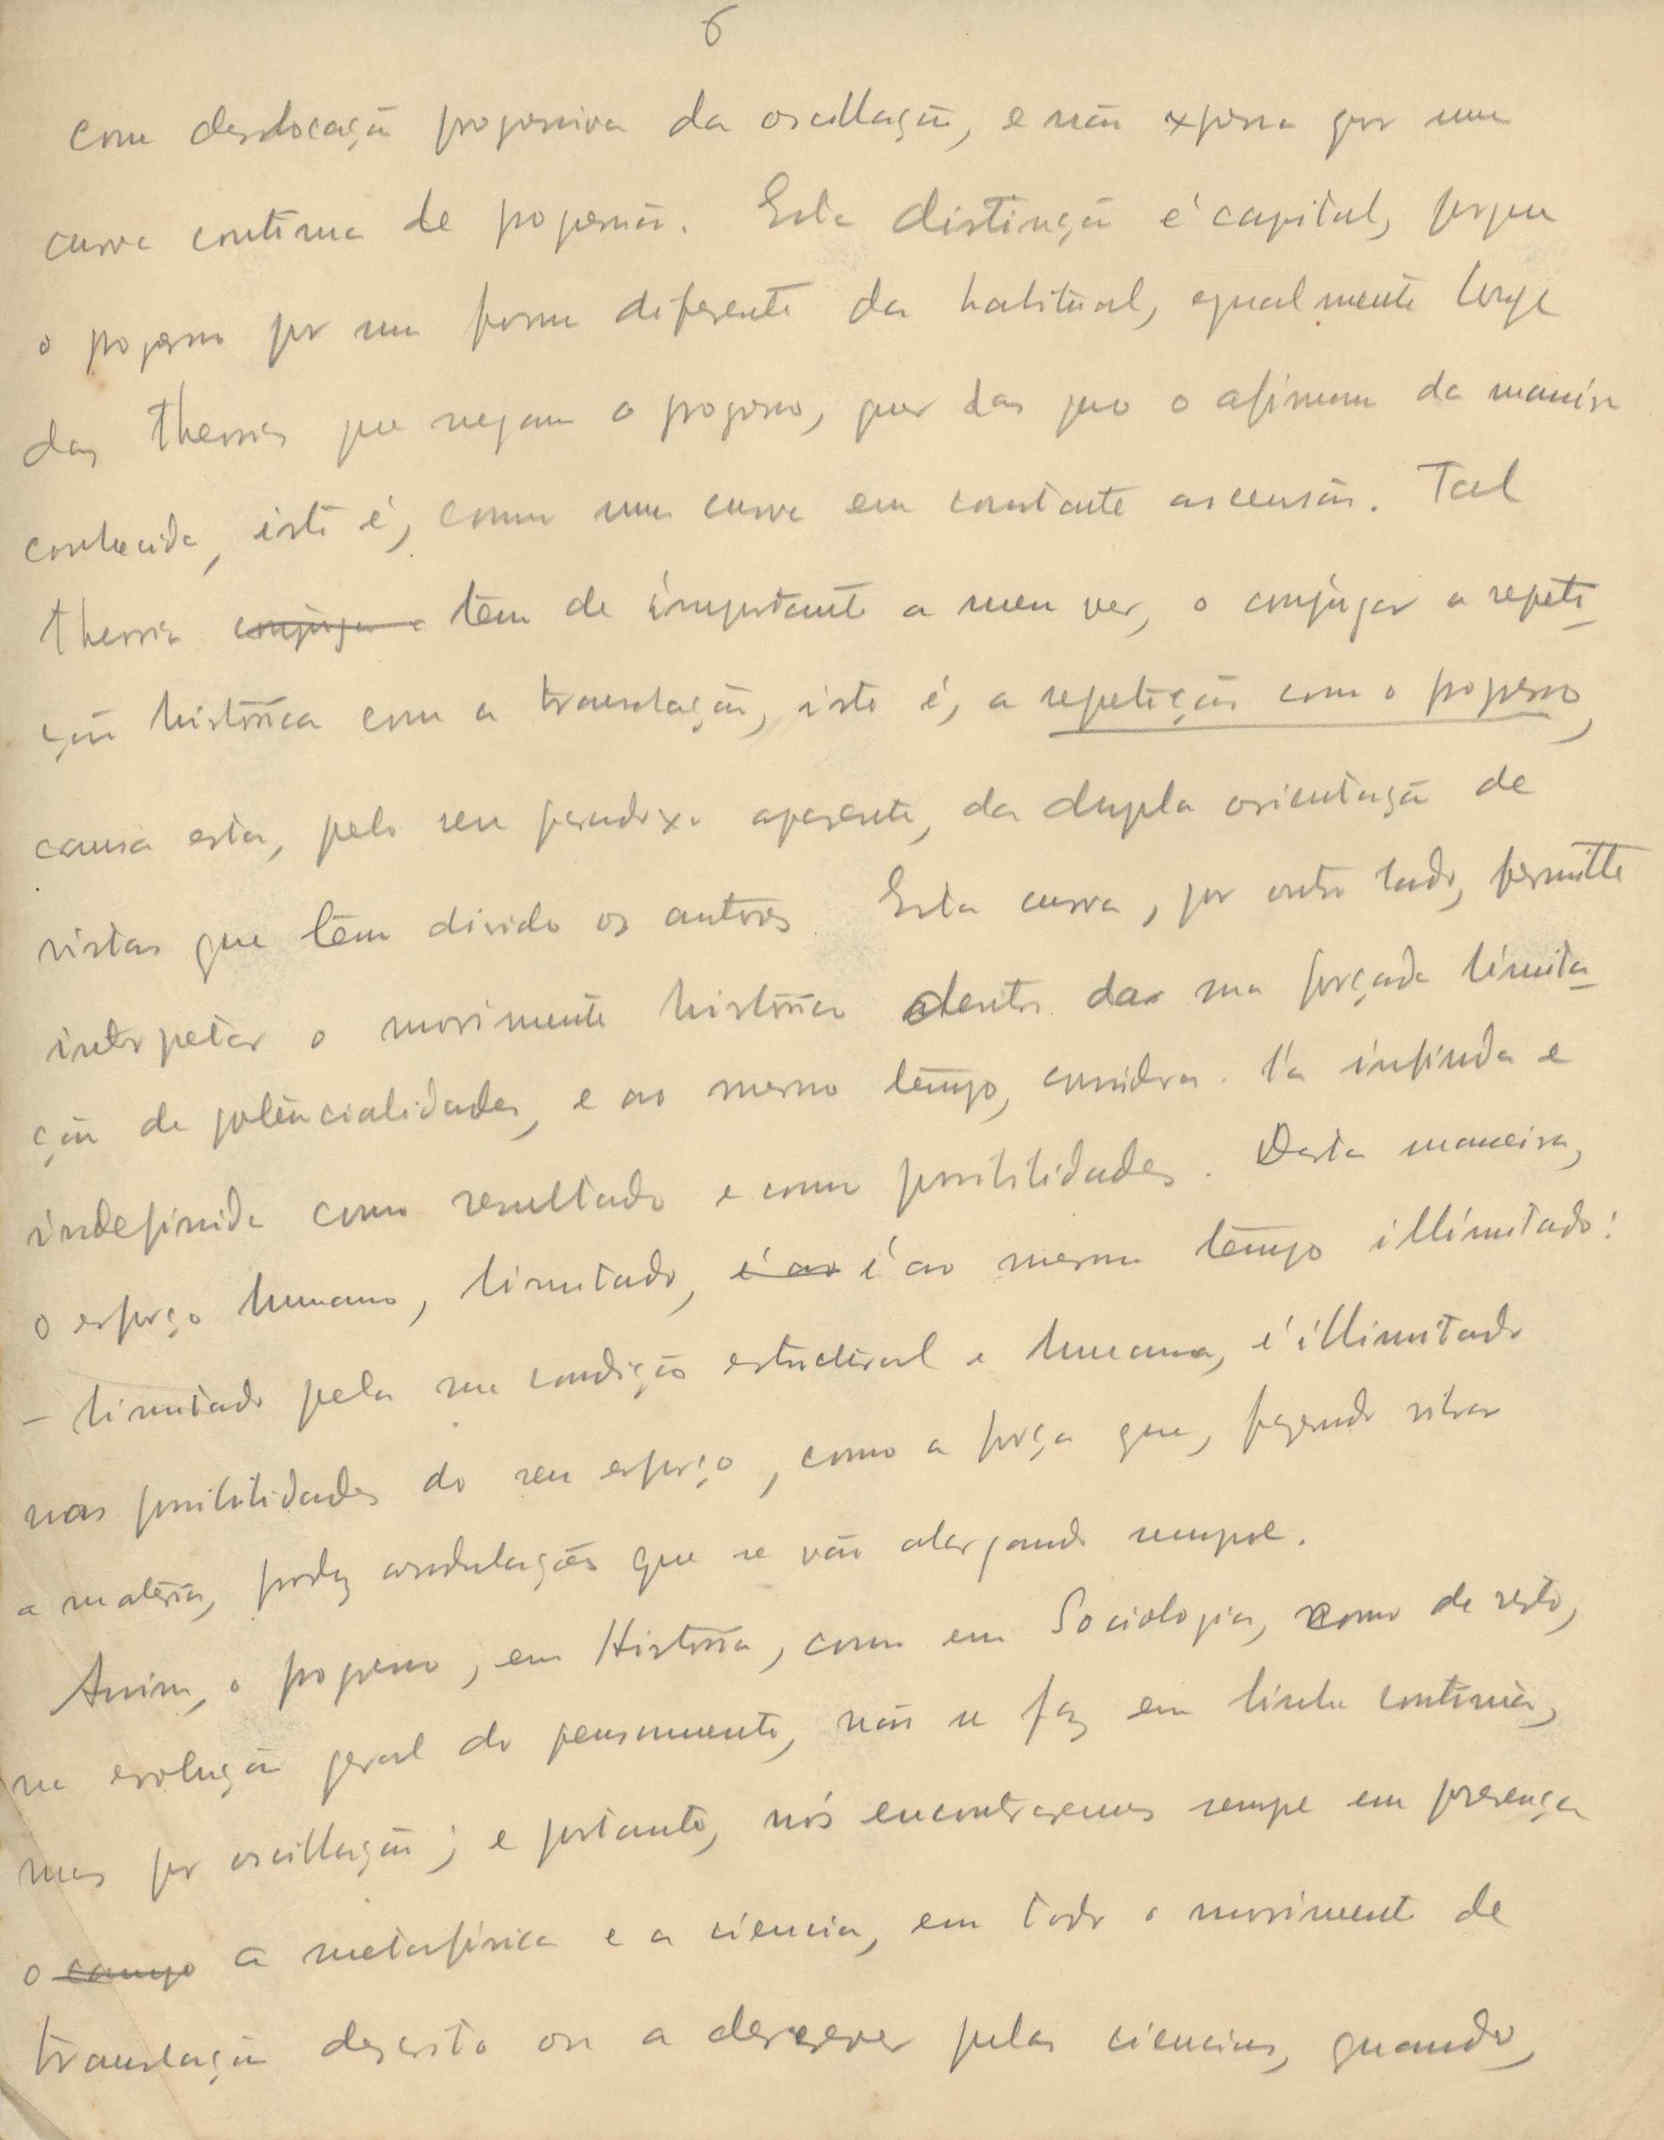 6
com deslocação progressiva da oscillação, e não expressa por uma
curva continua de progressão. Esta distinção é capital, porque
o progresso por uma forma diferente da habitual, egualmente longe
das theorias que negam o progresso, quer das que o afirmam da maneira
conhecida, isto é, como uma curva em constante ascensão. Tal
theoria conjuga a tem de importante a meu ver, o conjugar a repeti-
ção histórica com a translação, isto é, a repetição com o progresso,
causa esta, pelo seu paradoxo aparente, da dupla orientação de
vistas que tem divido os autores. Esta curva, por outro lado, permitte
interpetar o movimento histórico dentro da sua forçada limita-
ção de potencialidades, e ao mesmo tempo, considera-l'a infinda e
indefinida como resultado e como possibilidades. Desta maneira,
o esforço humano, limitado, é ao é ao mesmo tempo illimitado:
– limitado pela sua condição estructural e humana, é illimitado
nas possibilidades do seu esforço, como a força que, fazendo vibrar
a matéria, produz ondulações que se vão alargando sempre.
Assim, o progresso, em História, como em Sociologia, como de resto,
na evolução geral do pensamento, não se faz em linha continua,
mas por oscillação; e portanto, nós encontraremos sempre em presença
o campo a metafísica e a ciencia, em todo o movimento de
translação descrito ou a descrever pelas ciencias, quando,